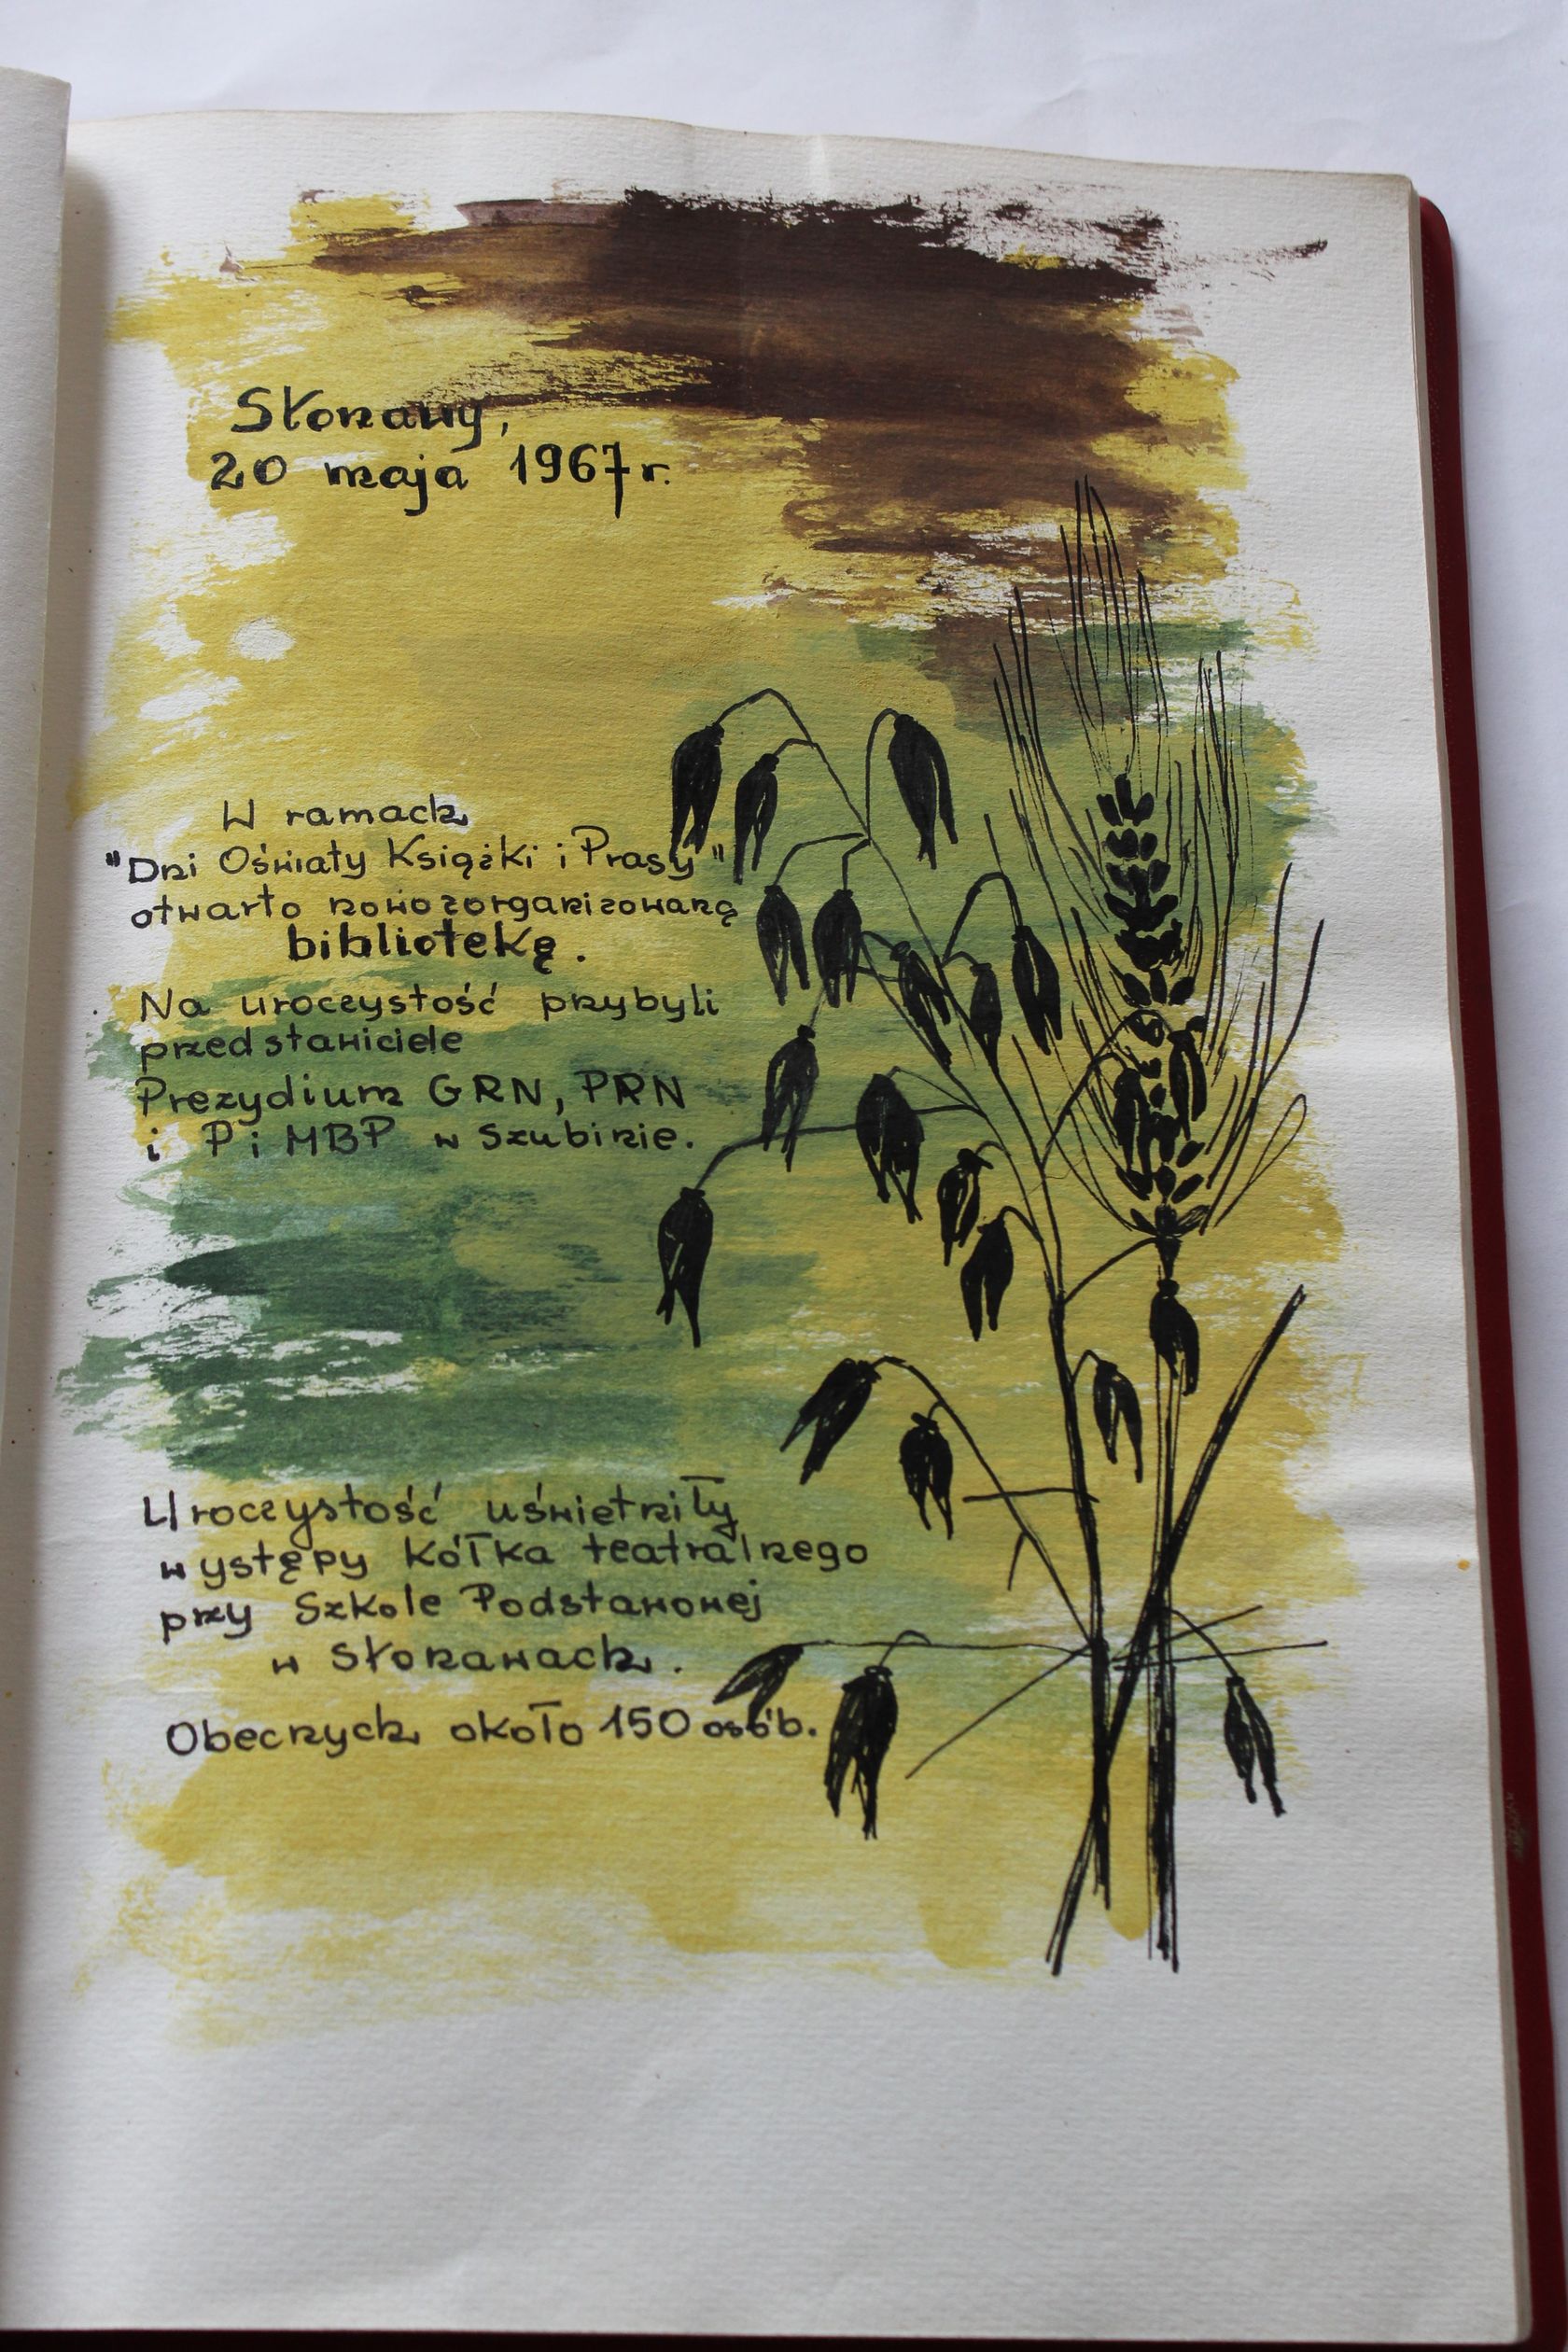 Słonawy,
20 maja 1967r.
W ramach
"Dni Oświaty Książki i Prasy"
otwarto nowozorganizowaną
bibliotekę.
Na uroczystość przybyli
przedstawiciele
Prezydium GRN, PRN
i PiMBP w Szubinie.
Uroczystość uświetniły
występy kółka teatralnego
przy Szkole Podstawowej
w Słonawach.
Obecnych około 150 osób.